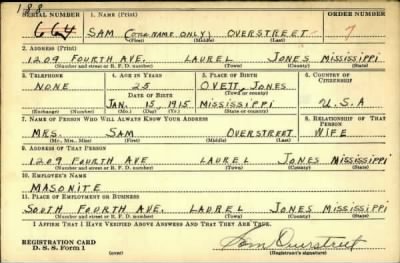 188
SERIAL NUMBER 1. NAME (Print) ORDER NUMBER
664 SAM (ONE NAME ONLY) OVERSTREET 7
(First) (Middle) (Last)
2. ADDRESS (Print)
1209 FOURTH AVE. LAUREL JONES MISSISSIPPI
(Number and street or R. F. D. number) (Town) (County) (State)
3. TELEPHONE 4. AGE IN YEARS 5. PLACE OF BIRTH 6. COUNTRY OF CITIZENSHIP
NONE 25 OVETT, JONES
DATE OF BIRTH (Town or county)
JAN. 15, 1915 MISSISSIPPI U.S.A
(Exchange) (Number) (Mo.) (Day) (Yr.) (State or country)
7. NAME OF PERSON WHO WILL ALWAYS KNOW YOUR ADDRESS 8. RELATIONSHIP OF THAT PERSON
MRS. SAM OVERSTREET WIFE
(Mr., Mrs., Miss) (First) (Middle) (Last)
9. ADDRESS OF THAT PERSON
1209 FOURTH AVE LAUREL JONES MISSISSIPPI
(Number and street or R. F. D. number) (Town) (County) (State)
10. EMPLOYER'S NAME
MASONITE
11. PLACE OF EMPLOYMENT OR BUSINESS
SOUTH FOURTH AVE. LAUREL JONES MISSISSIPPI
(Number and street or R. F. D. number) (Town) (County) (State)
I AFFIRM THAT I HAVE VERIFIED ABOVE ANSWERS AND THAT THEY ARE TRUE.
REGISTRATION CARD
D. S. S. Form 1 (over) Sam Overstreet
(Registrant's signature)